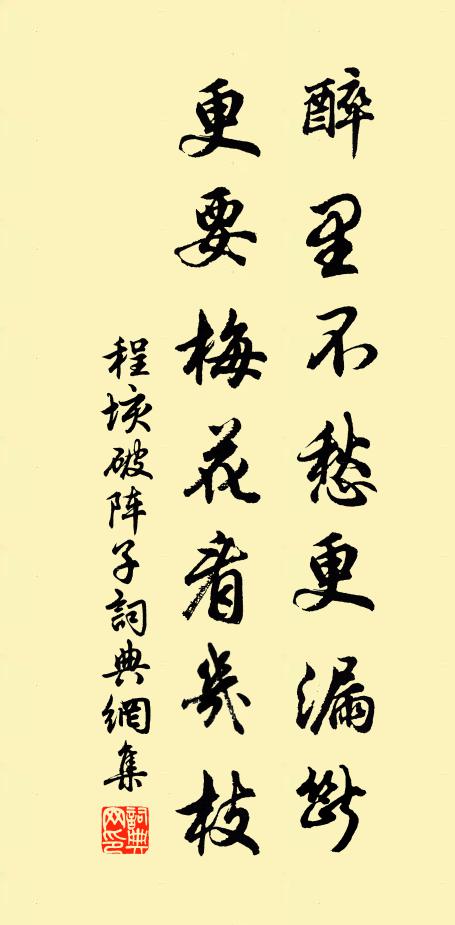 醉里不愁更漏断
更要梅花看几枝
程垓破阵子詞典網集
詞典网印